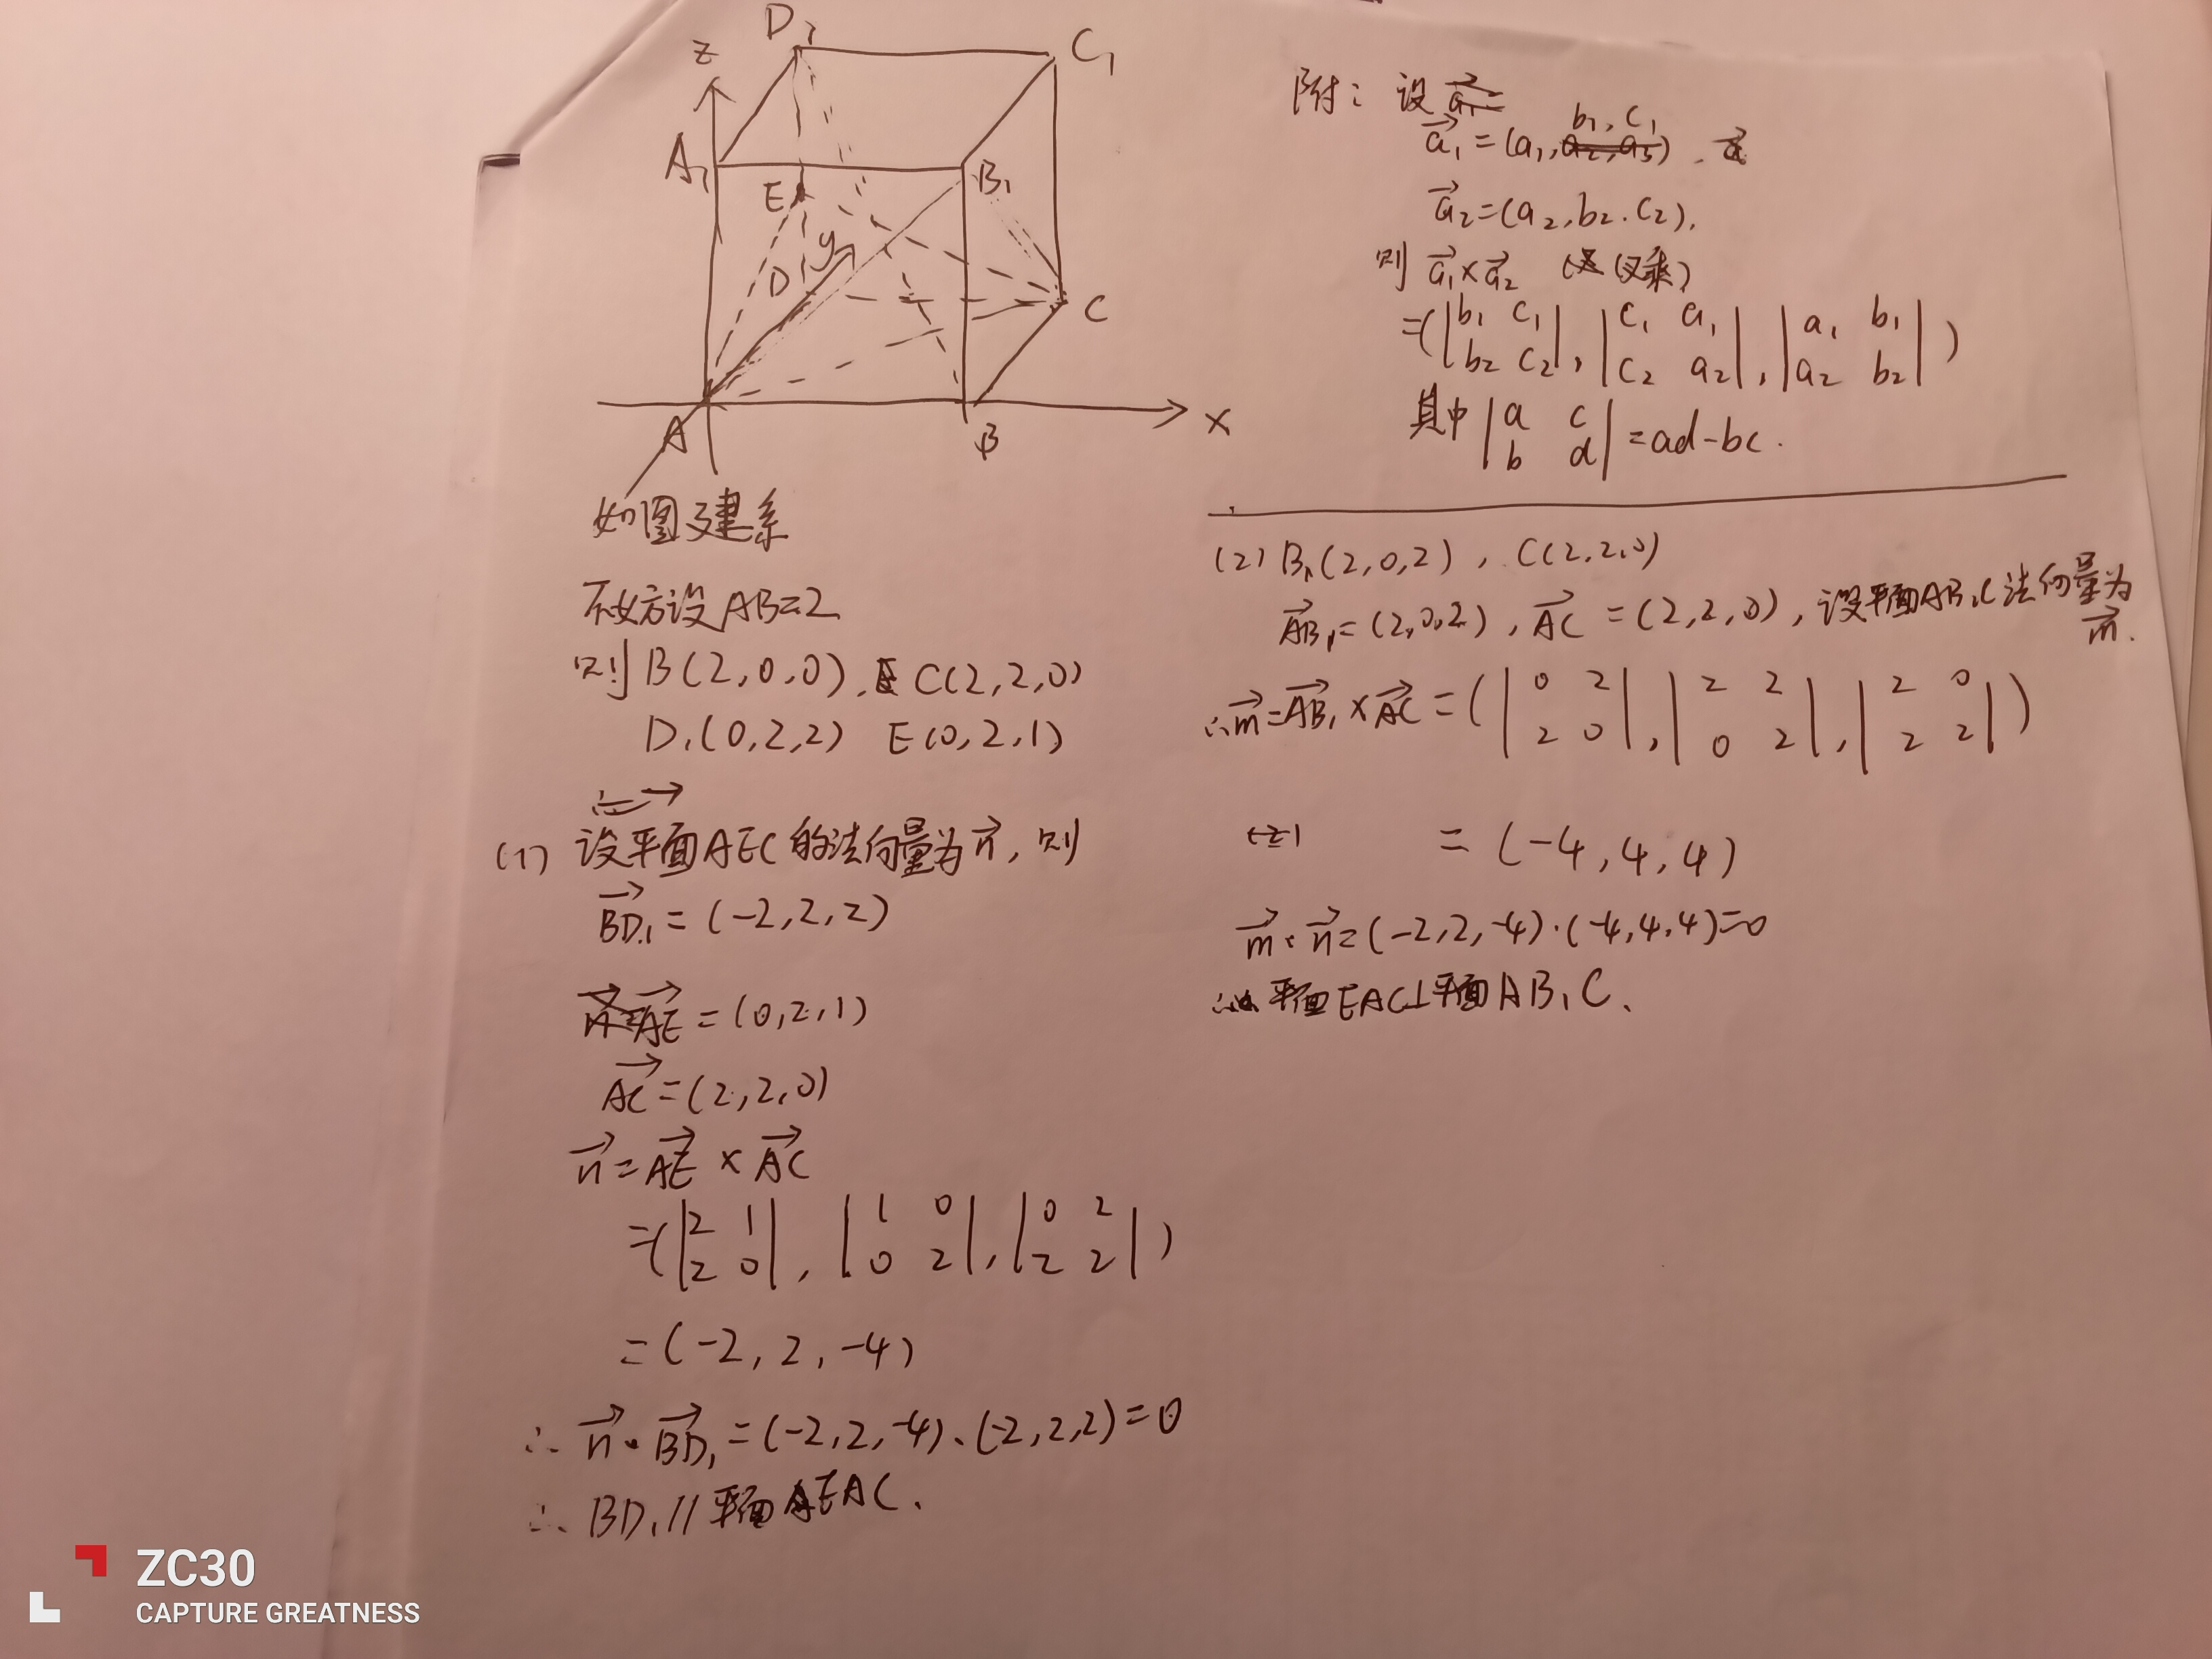 D₁
C₁
z
A₁
B₁
E
y
D
C
A
B
x
如图建系
不妨设AB=2
则B(2,0,0), C(2,2,0)
D₁(0,2,2) E(0,2,1)
(1) 设平面AEC的法向量为n⃗, 则
BD₁⃗=(-2,2,2)
AE⃗=(0,2,1)
AC⃗=(2,2,0)
n⃗=AE⃗×AC⃗
=(|2 1|, |1 0|, |0 2|)
|2 0| |0 2| |2 2|
=(-2,2,-4)
∴n⃗·BD₁⃗=(-2,2,-4)·(-2,2,2)=0
∴BD₁//平面EAC.
附: 设
a₁⃗=(a₁,b₁,c₁)
a₂⃗=(a₂,b₂,c₂),
则a₁⃗×a₂⃗ (叉乘)
=(|b₁ c₁|, |c₁ a₁|, |a₁ b₁|)
|b₂ c₂| |c₂ a₂| |a₂ b₂|
其中|a c|=ad-bc.
|b d|
(2) B₁(2,0,2), C(2,2,0)
AB₁⃗=(2,0,2), AC⃗=(2,2,0), 设平面AB₁C法向量为
m⃗.
∴m⃗=AB₁⃗×AC⃗=(|0 2|, |2 2|, |2 0|)
|2 0| |0 2| |2 2|
=(-4,4,4)
m⃗·n⃗=(-2,2,-4)·(-4,4,4)=0
∴平面EAC⊥平面AB₁C.
ZC30
CAPTURE GREATNESS